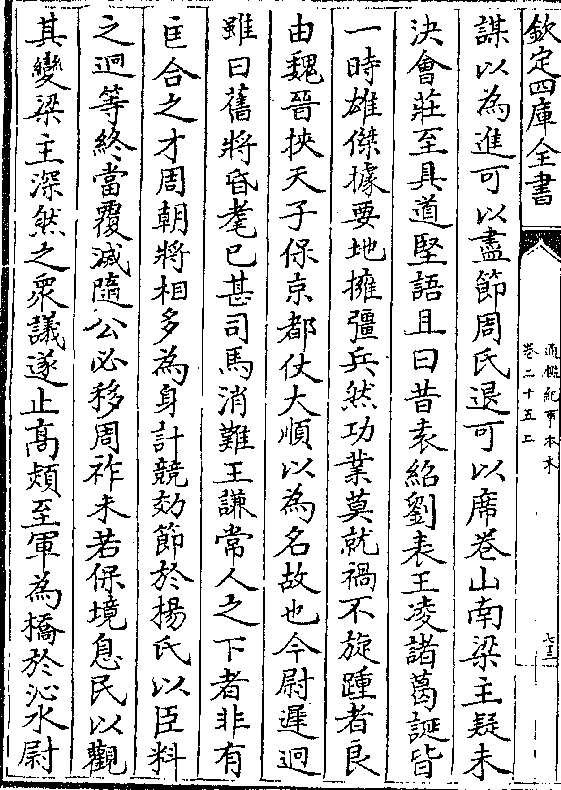 欽定四庫全書
通鑑紀事本末
卷二十五上
謀以為進可以盡節周氏退可以席卷山南梁主疑未
決會莊至具道堅語且曰昔袁紹劉表王凌諸葛誕皆
一時雄傑據要地擁彊兵然功業莫就禍不旋踵者良
由魏晉挾天子保京都仗大順以為名故也今尉遲迥
雖曰舊將昏耄已甚司馬消難王謙常人之下者非有
匡合之才周朝將相多為身計競効節於楊氏以臣料
之迥等終當覆滅隨公必移周祚未若保境息民以觀
其變梁主深然之衆議遂止高熲至軍為橋於沁水尉